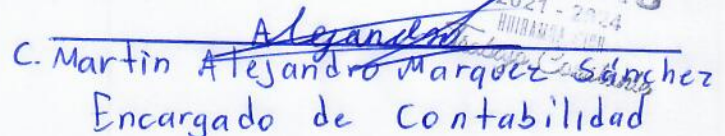 2021 - 2024
Alejandro
C. Martin Alejandro Marquez Sánchez
Encargado de Contabilidad